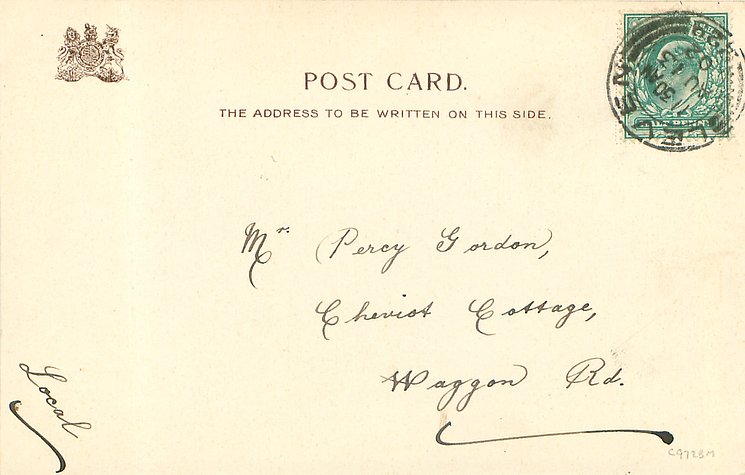 POST CARD.
THE ADDRESS TO BE WRITTEN ON THIS SIDE.
Mr. Percy Gordon,
Cheviot Cottage,
Waggon Rd.
Local
C972BM